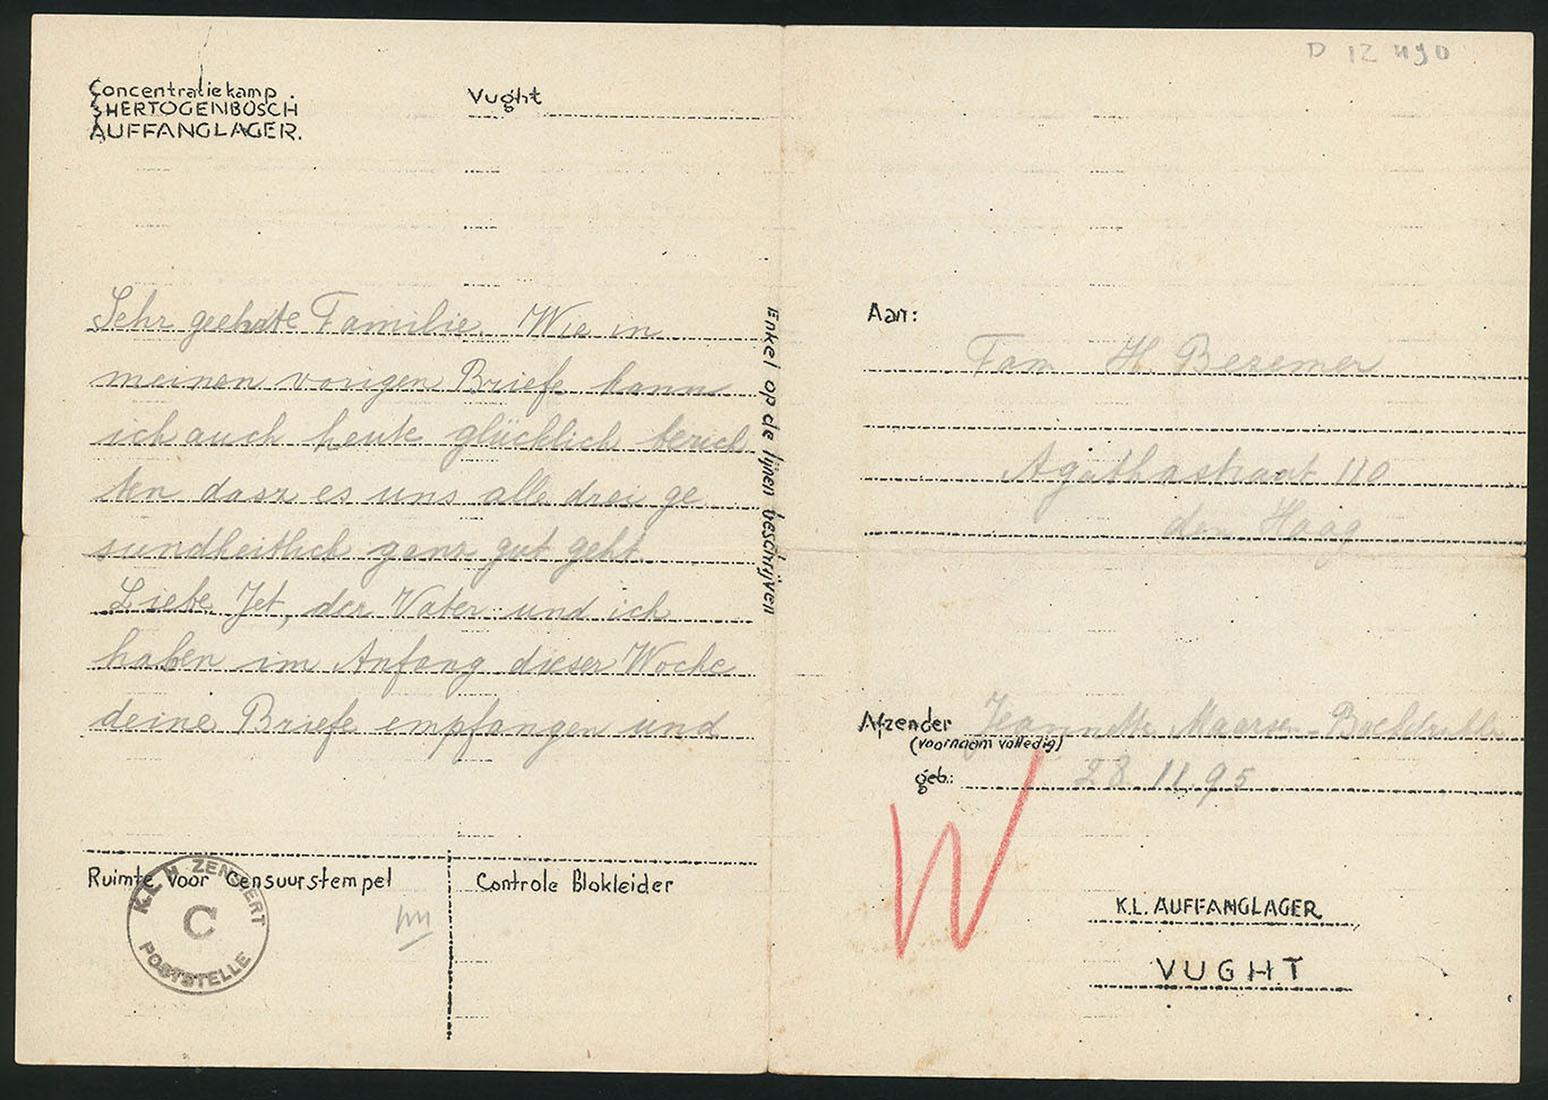 D 12490
Concentratiekamp
'SHERTOGENBOSCH
AUFFANGLAGER.
Vught
Sehr geehrte Familie. Wie in
meinen vorigen Briefe kann
ich auch heute glücklich berich
ten dasz es uns alle drei ge
sundheitlich ganz gut geht.
Liebe Jet, der Vater und ich
haben im Anfang dieser Woche
deine Briefe empfangen und
Ruimte voor Censuurstempel
K.L.H. ZENSIERT
C
POSTSTELLE
Controle Blokleider
Enkel op de lijnen beschrijven
Aan:
Fam H. Bezemer
Agathastraat 110
den Haag
Afzender Jeannette Maarsen-
(voornaam volledig)
geb.: 28.11.95
W
K.L. AUFFANGLAGER
VUGHT